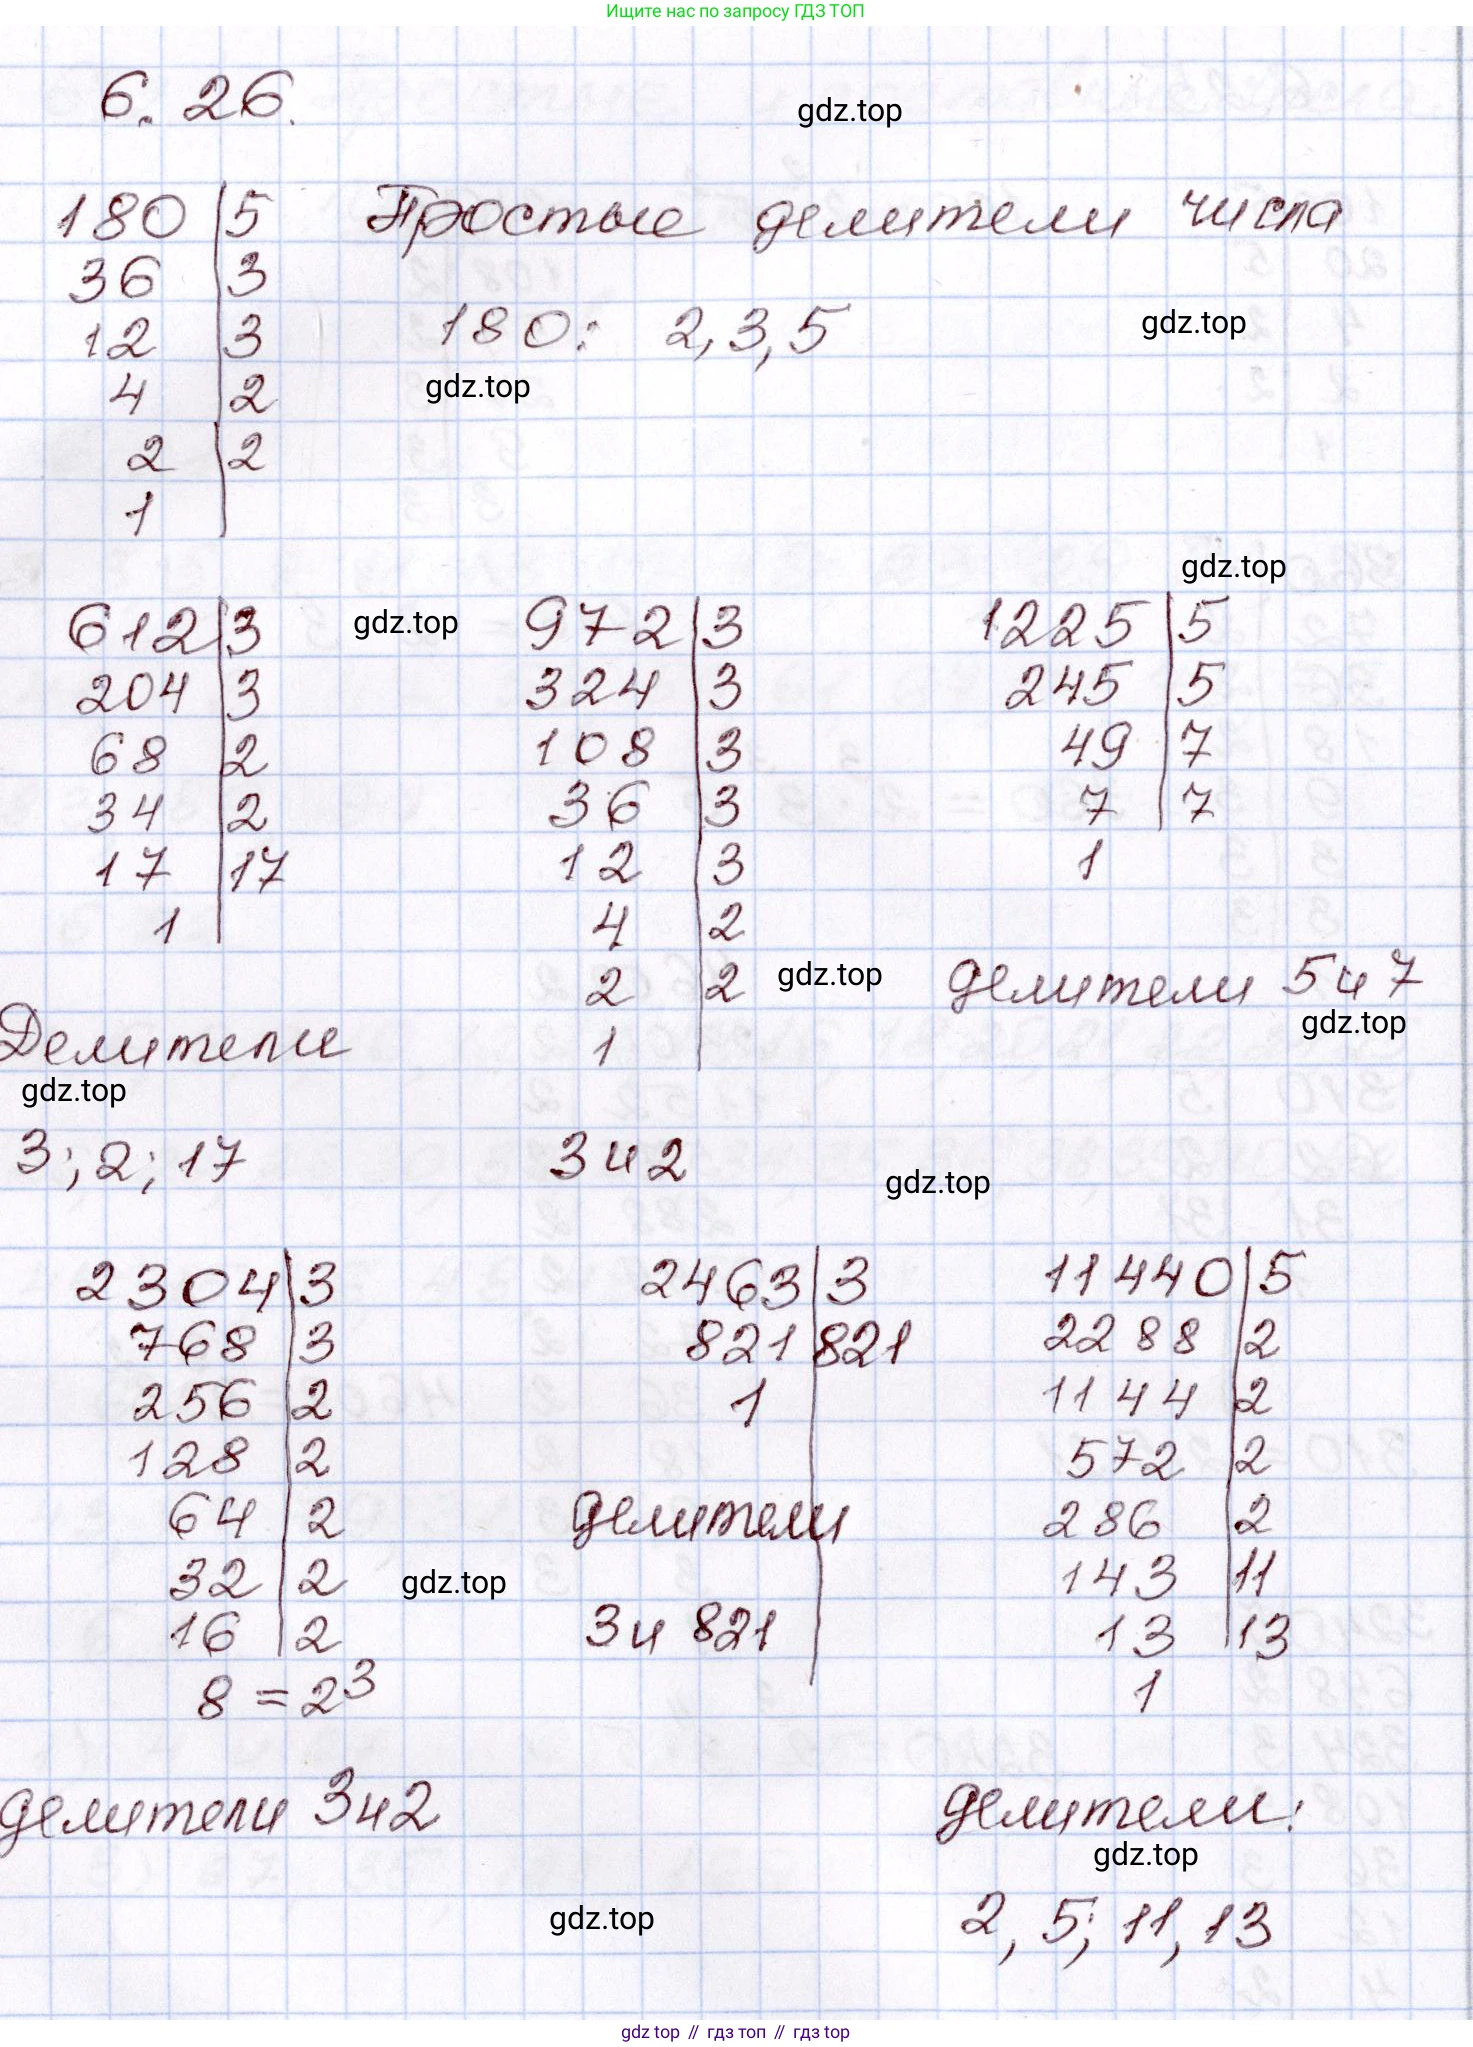 Ищите нас по запросу ГДЗ ТОП
6.26.
gdz.top
180 | 5 Простые делители числа
36 | 3
12 | 3 180: 2, 3, 5 gdz.top
4 | 2 gdz.top
2 | 2
1
gdz.top
612 | 3 gdz.top
204 | 3
68 | 2
34 | 2
17 | 17
1
Делители
gdz.top
3; 2; 17
972 | 3
324 | 3
108 | 3
36 | 3
12 | 3
4 | 2
2 | 2 gdz.top
1
3 и 2
gdz.top
1225 | 5
245 | 5
49 | 7
7 | 7
1
делители 5 и 7
gdz.top
2304 | 3
768 | 3
256 | 2
128 | 2
64 | 2
32 | 2 gdz.top
16 | 2
8 = 2³
делители 3 и 2
2463 | 3
821 | 821
1
делители
3 и 821
gdz.top
11440 | 5
2288 | 2
1144 | 2
572 | 2
286 | 2
143 | 11
13 | 13
1
делители:
gdz.top
2, 5; 11, 13
gdz top // гдз топ // гдз top